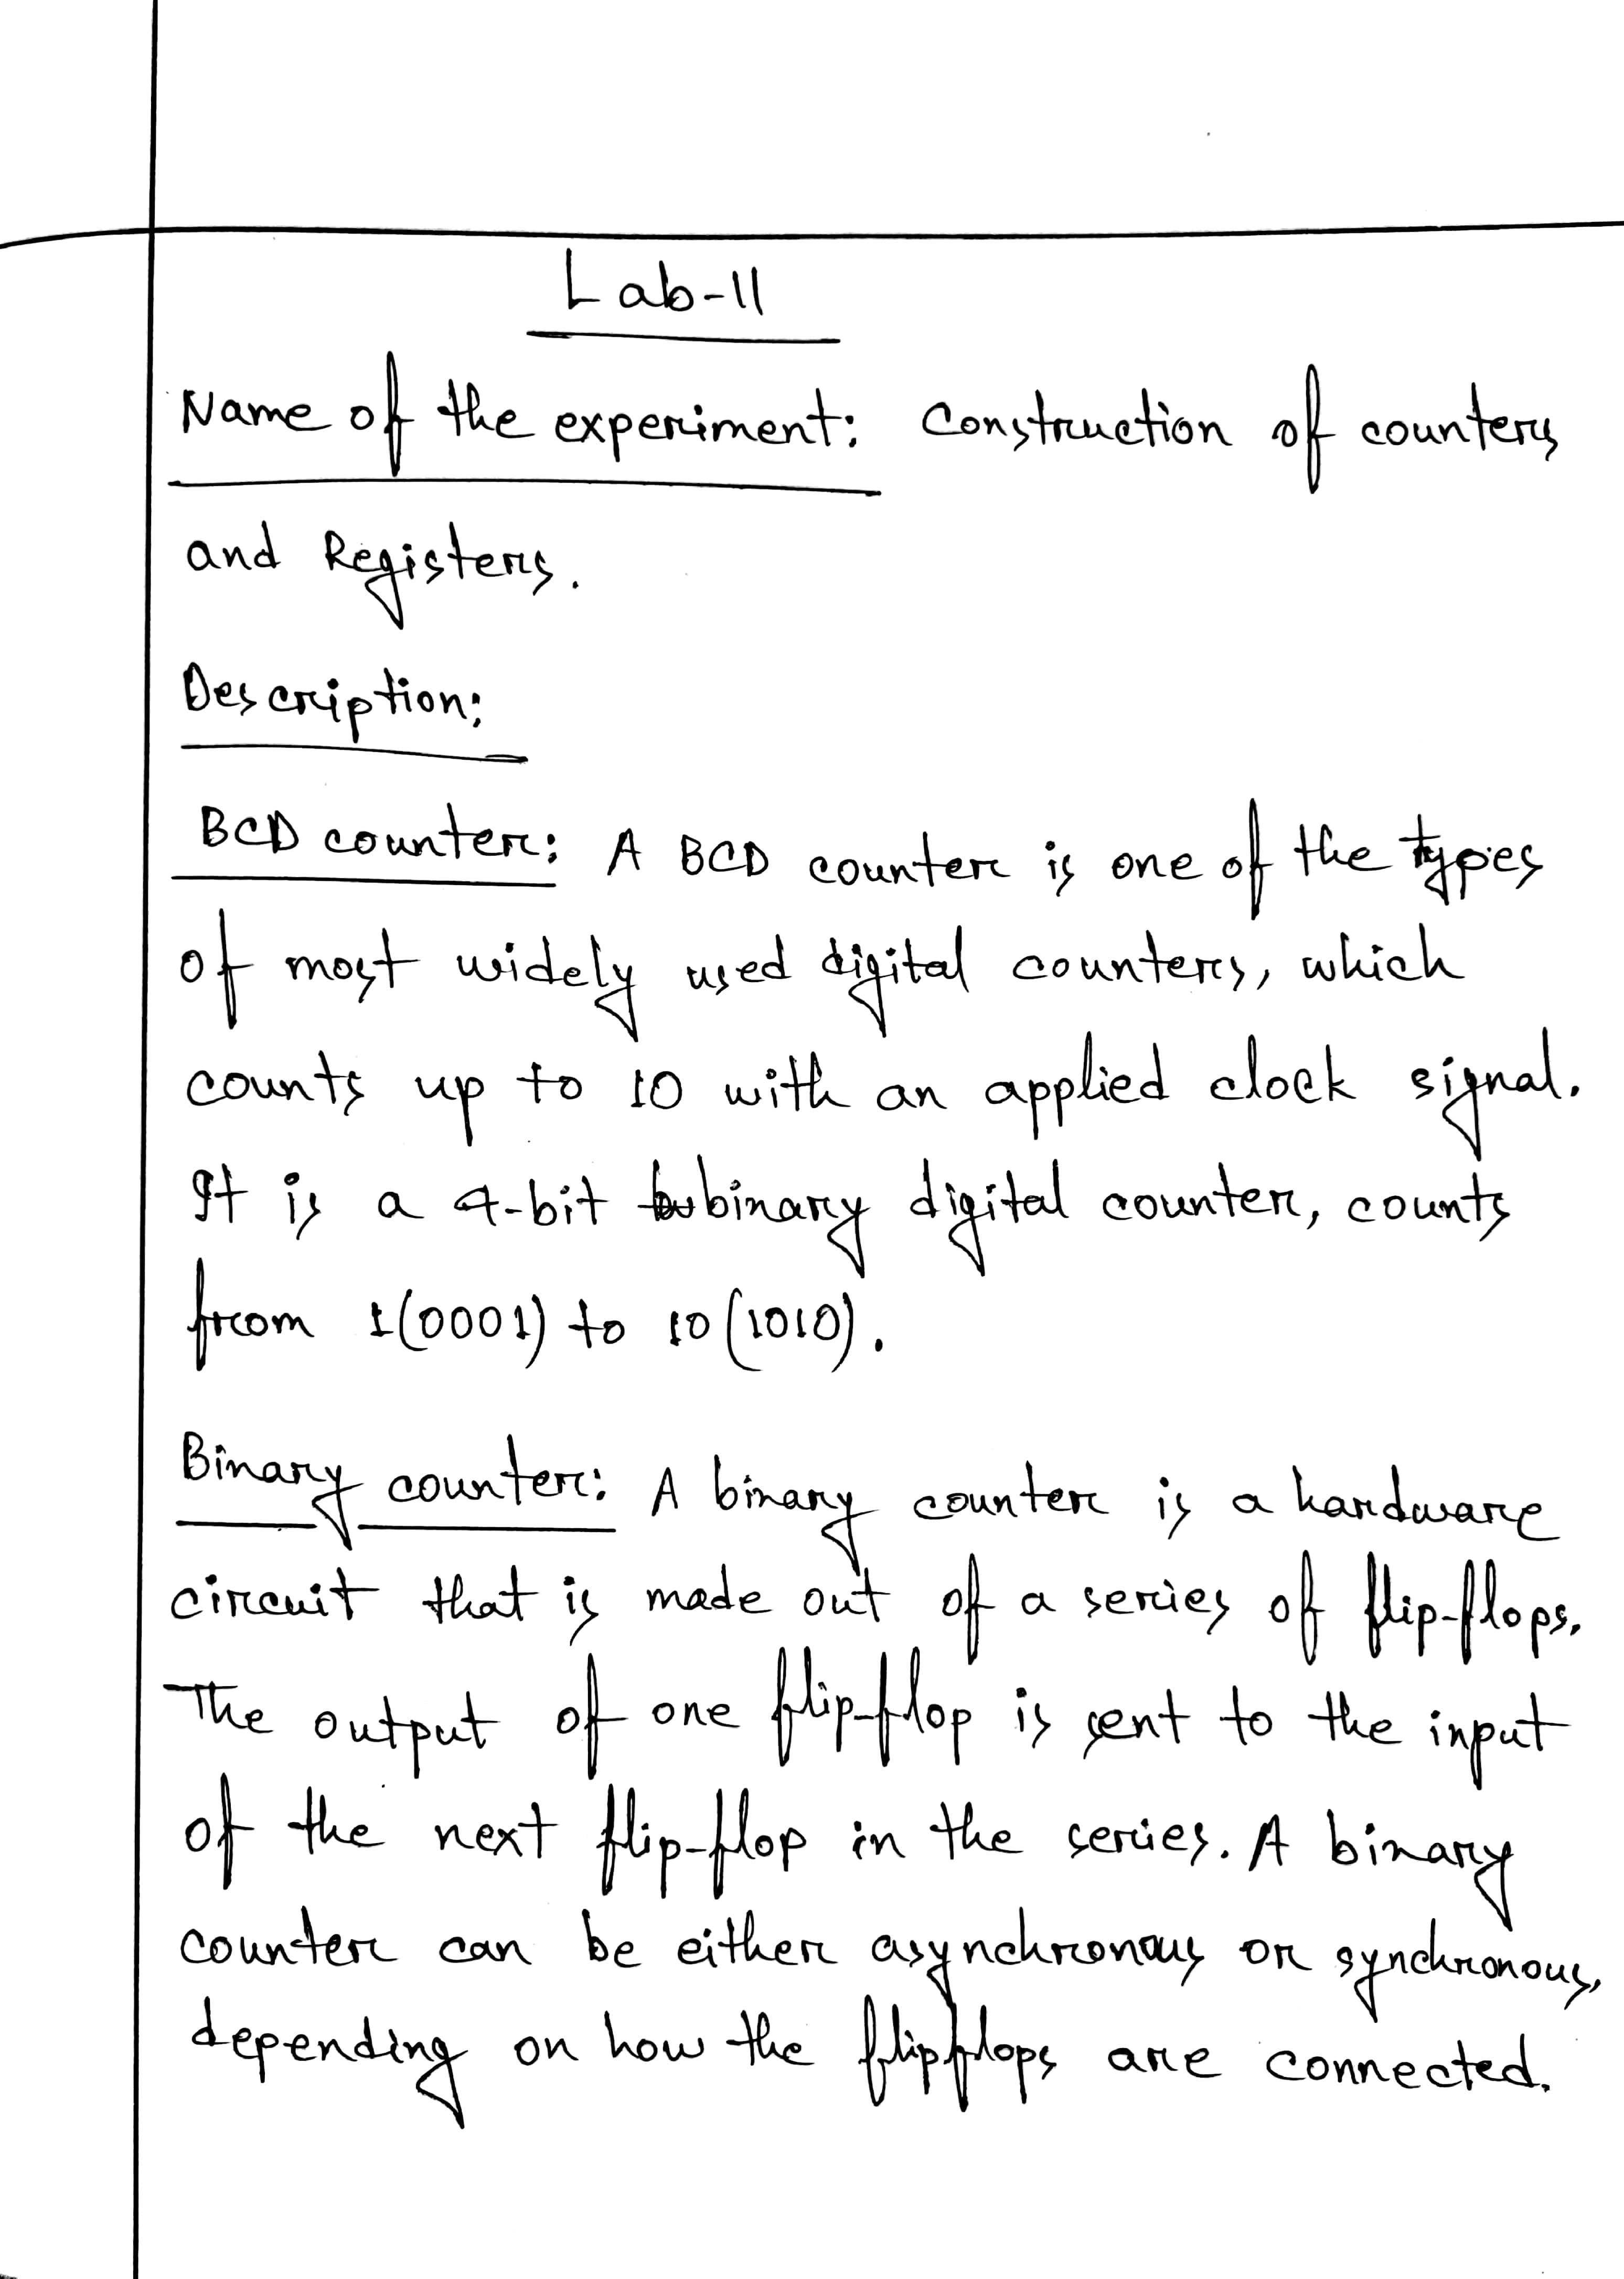 Lab-11
Name of the experiment: Construction of counters
and Registers.
Description:
BCD counter: A BCD counter is one of the types
of most widely used digital counters, which
counts up to 10 with an applied clock signal.
It is a 4-bit binary digital counter, counts
from 1(0001) to 10(1010).
Binary counter: A binary counter is a hardware
circuit that is made out of a series of flip-flops.
The output of one flip-flop is sent to the input
of the next flip-flop in the series. A binary
counter can be either asynchronous or synchronous,
depending on how the flipflops are connected.